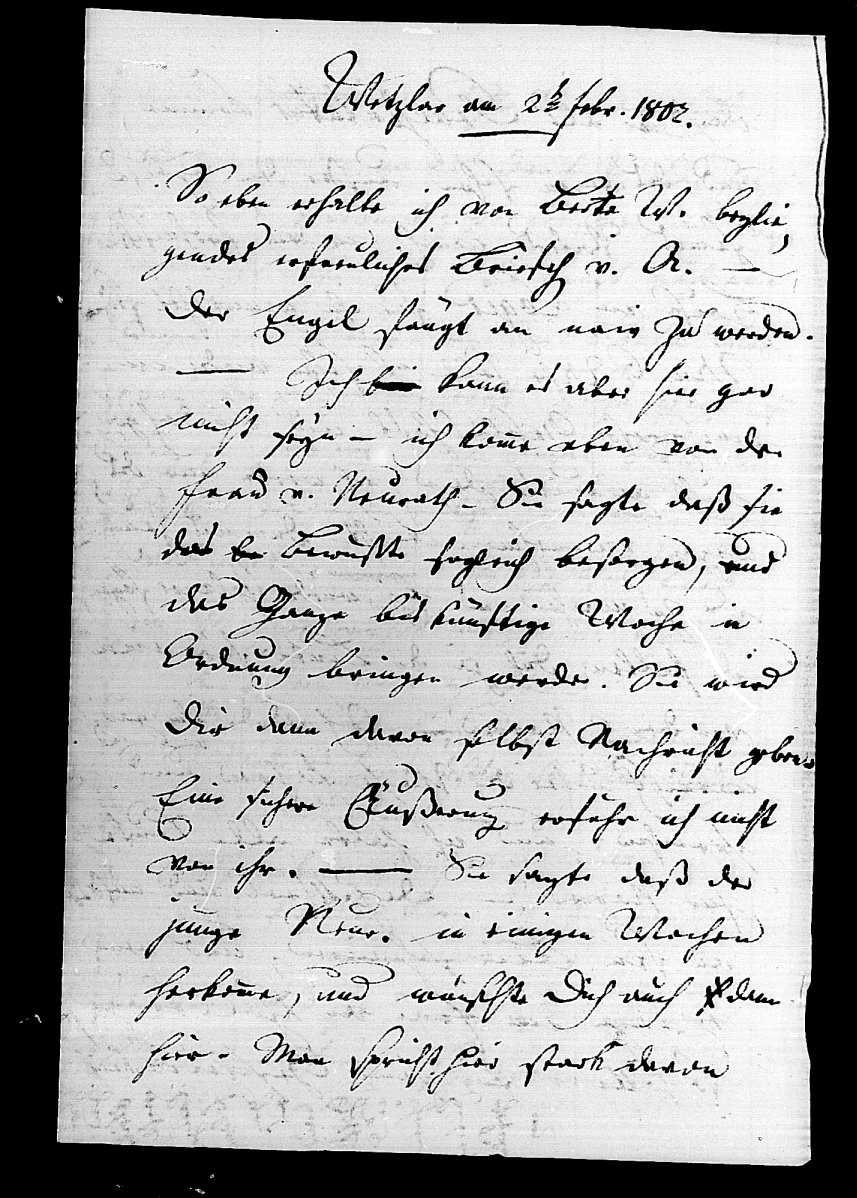 Wetzlar am 2t Febr. 1802.
So eben erhalte ich von Berta W. beylie,
gendes erfreuliches Briefch v. A. —
Der Engel fängt an naiv zu werden.
— Ich kann es aber hier gar
nicht seyn – ich komme eben von der
Frau v. Neurath – Sie sagte daß sie
das Bewußte sogleich besorgen, und
das Ganze bis künftige Woche in
Ordnung bringen werde. Sie wird
Dir dann davon selbst Nachricht geben.
Eine sichere Äußerung erfuhr ich nicht
von ihr. — Sie sagte daß der
junge Neur. in einigen Wochen
herkomme, und wünschte Dich auch dann
hier. Man spricht hier stark davon